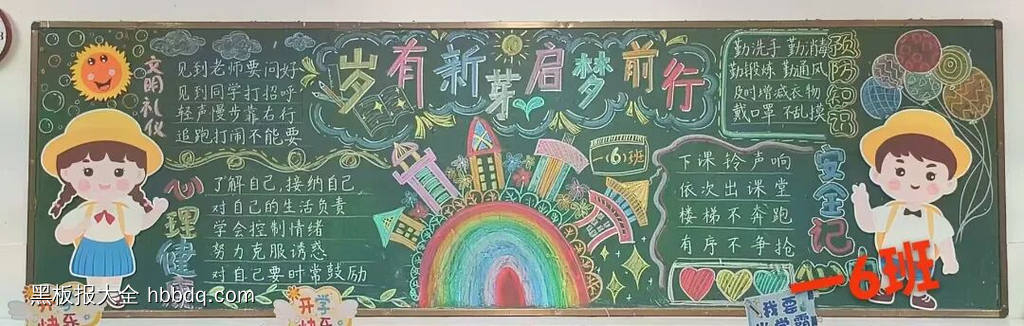 岁有新芽启梦前行
文明礼仪
见到老师要问好
见到同学打招呼
轻声慢步靠右行
追跑打闹不能要
心理健
了解自己,接纳自己
对自己的生活负责
学会控制情绪
努力克服诱惑
对自己要时常鼓励
一(6)班
预防知识
勤洗手 勤消毒
勤锻炼 勤通风
及时增减衣物
戴口罩 不乱摸
安全记
下课铃声响
依次出课堂
楼梯不奔跑
有序不争抢
一6班
黑板报大全 hbbdq.com
开学
快乐
开学
快乐
我要
当学霸